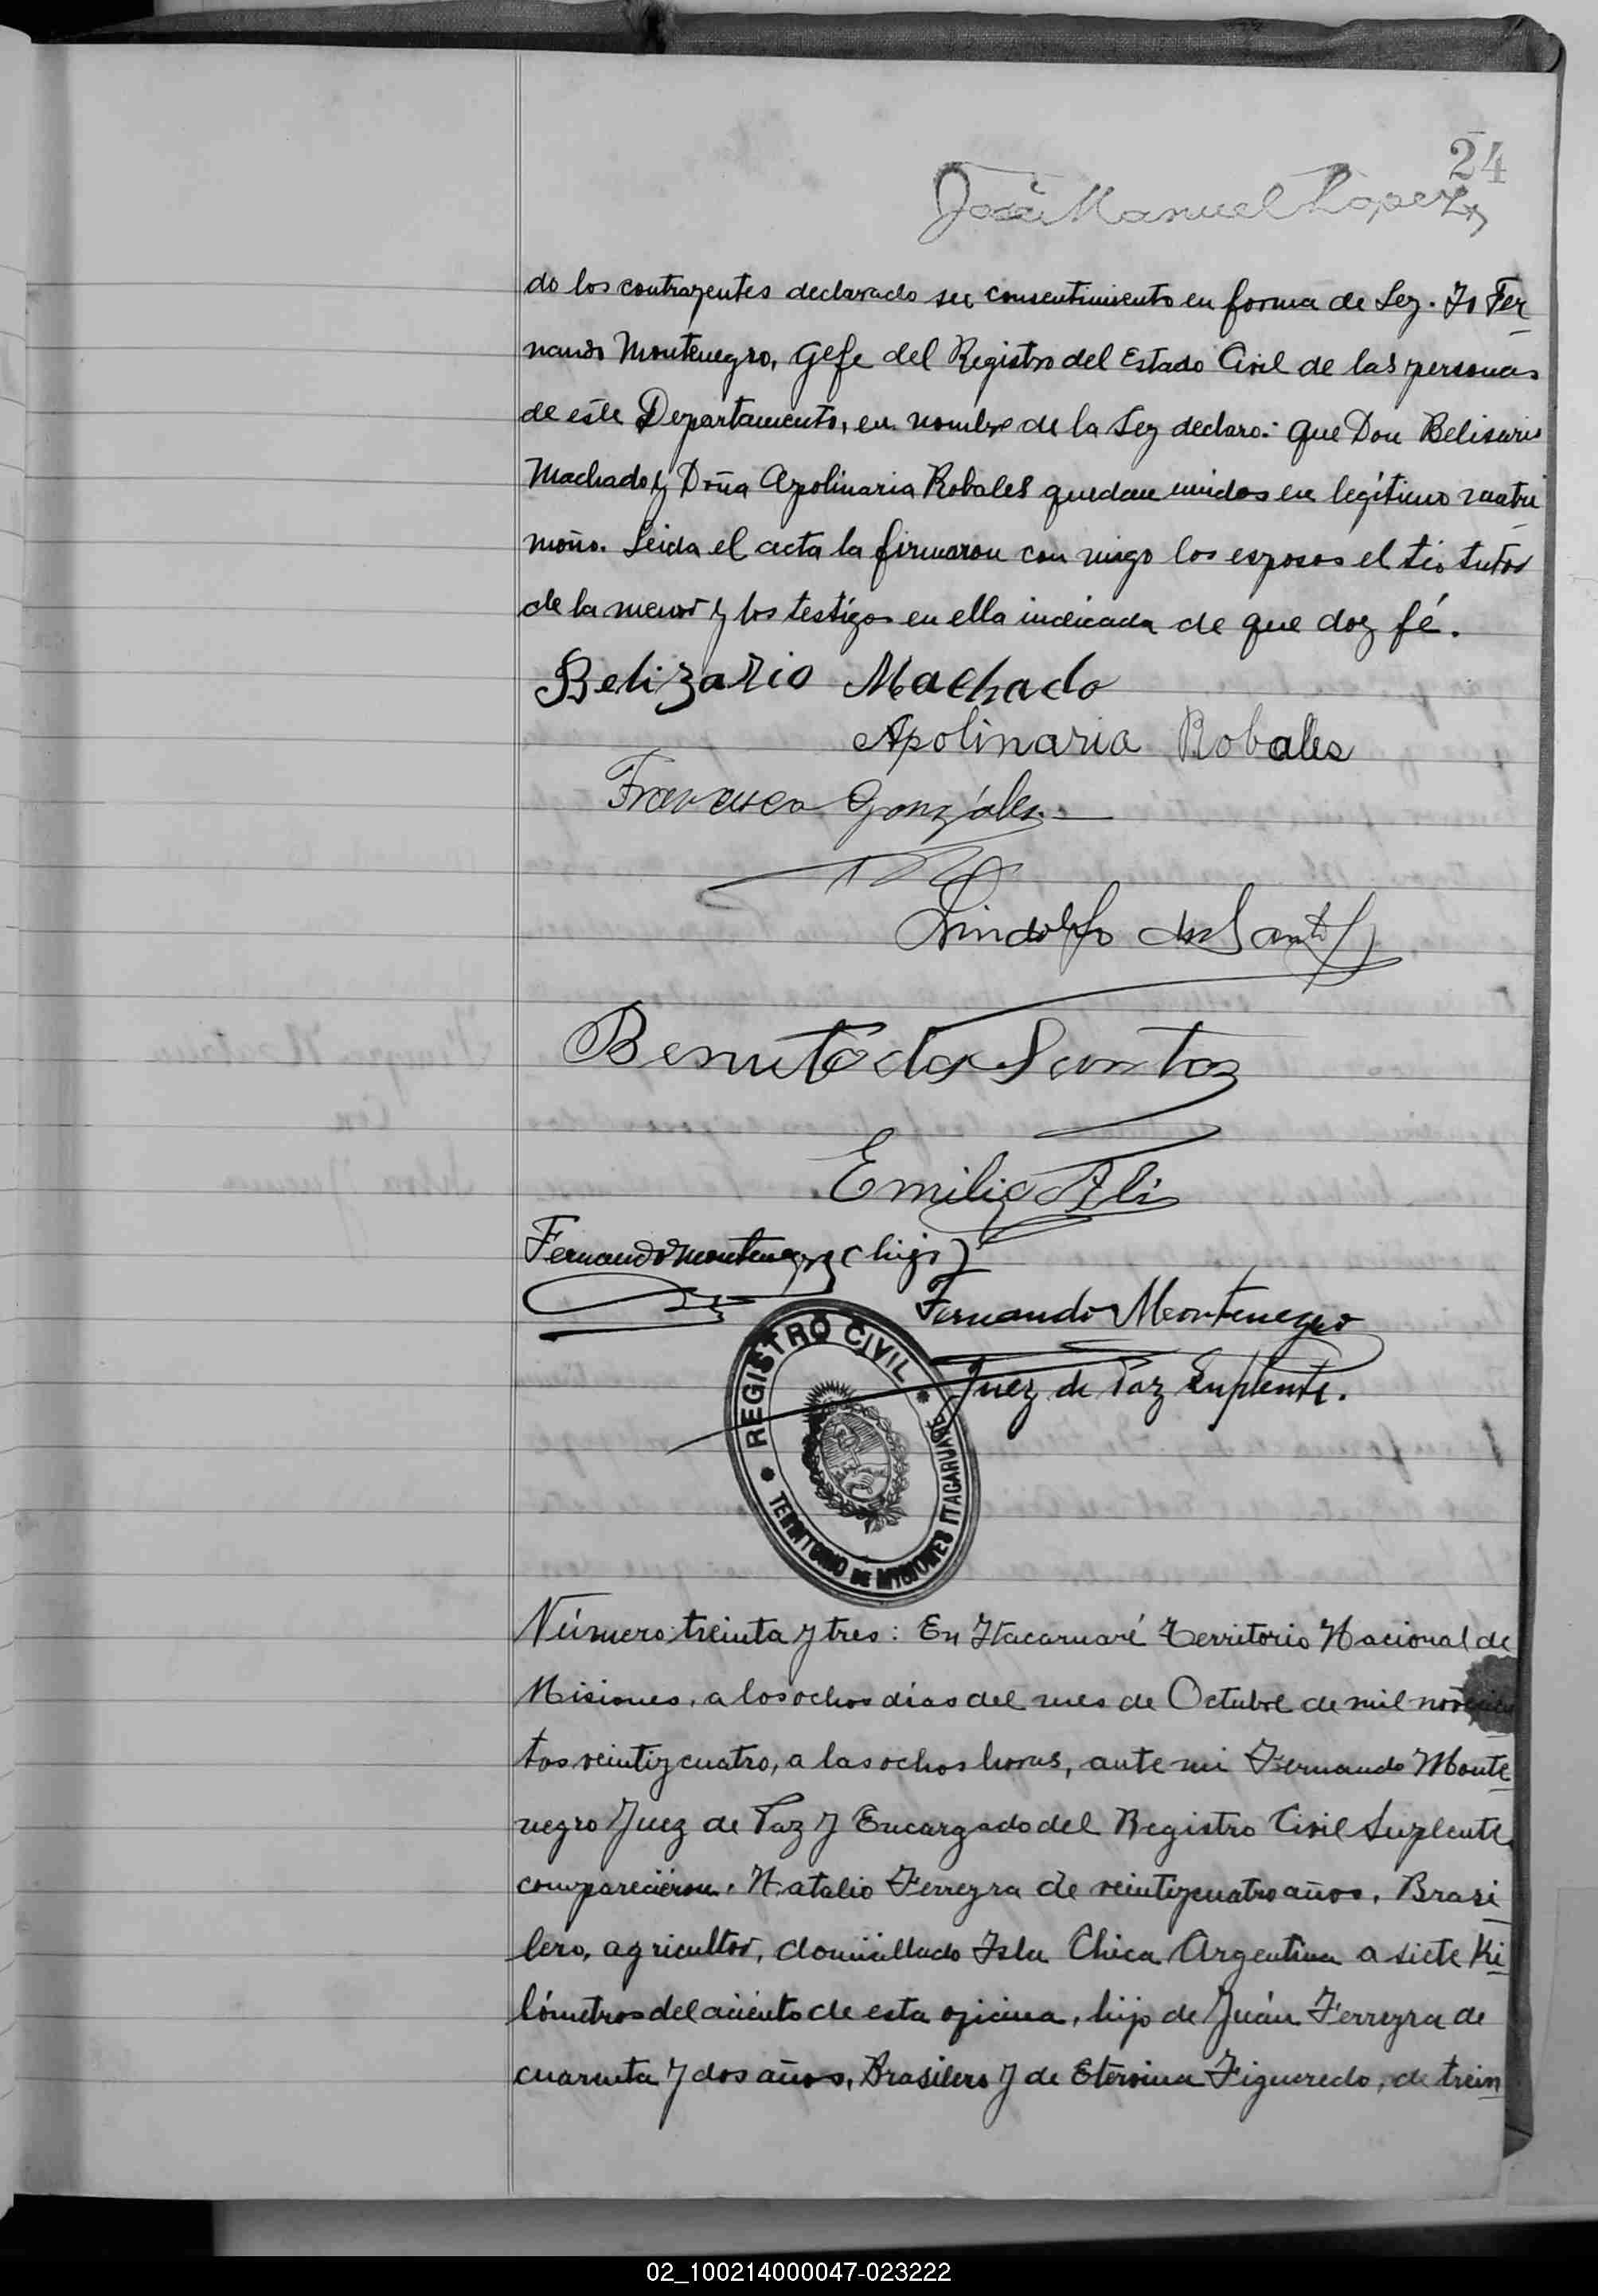 24
José Manuel Lopez
do los contrayentes declarado su consentimiento en forma de Ley. Yo Fer
nando Montenegro, Gefe del Registro del Estado Civil de las personas
de este Departamento, en nombre de la Ley declaro: que Don Belisario
Machado y Doña Apolinaria Robales quedan unidos en legítimo matri
moño. Leida el acta la firmaron con migo los esposos el tio tutor
de la menor y los testigos en ella indicada de que doy fé.
Belizario Machado
Apolinaria Robales
Francisco Gonzáles
Lindolfo dos Santos
Benito dos Santos
Emilio
Fernando Montenegro (hijo)
Fernando Montenegro
Juez de Paz Suplente.
REGISTRO CIVIL
TERRITORIO DE MISIONES ITACARUARÉ
Número treinta y tres: En Itacaruaré Territorio Nacional de
Misiones, a los ochos dias del mes de Octubre de mil novecien
tos veintiycuatro, a las ochos horas, ante mi Fernando Monte
negro Juez de Paz y Encargado del Registro Civil Suplente,
comparecieron. Natalio Ferreyra de veintiycuatro años, Brasi
lero, agricultor, domicillado Isla Chica Argentina a siete Ki
lómetros del aciento de esta oficina, hijo de Juán Ferreyra de
cuarenta y dos años, Brasilero y de Etérvina Figueredo, de trein
02_100214000047-023222